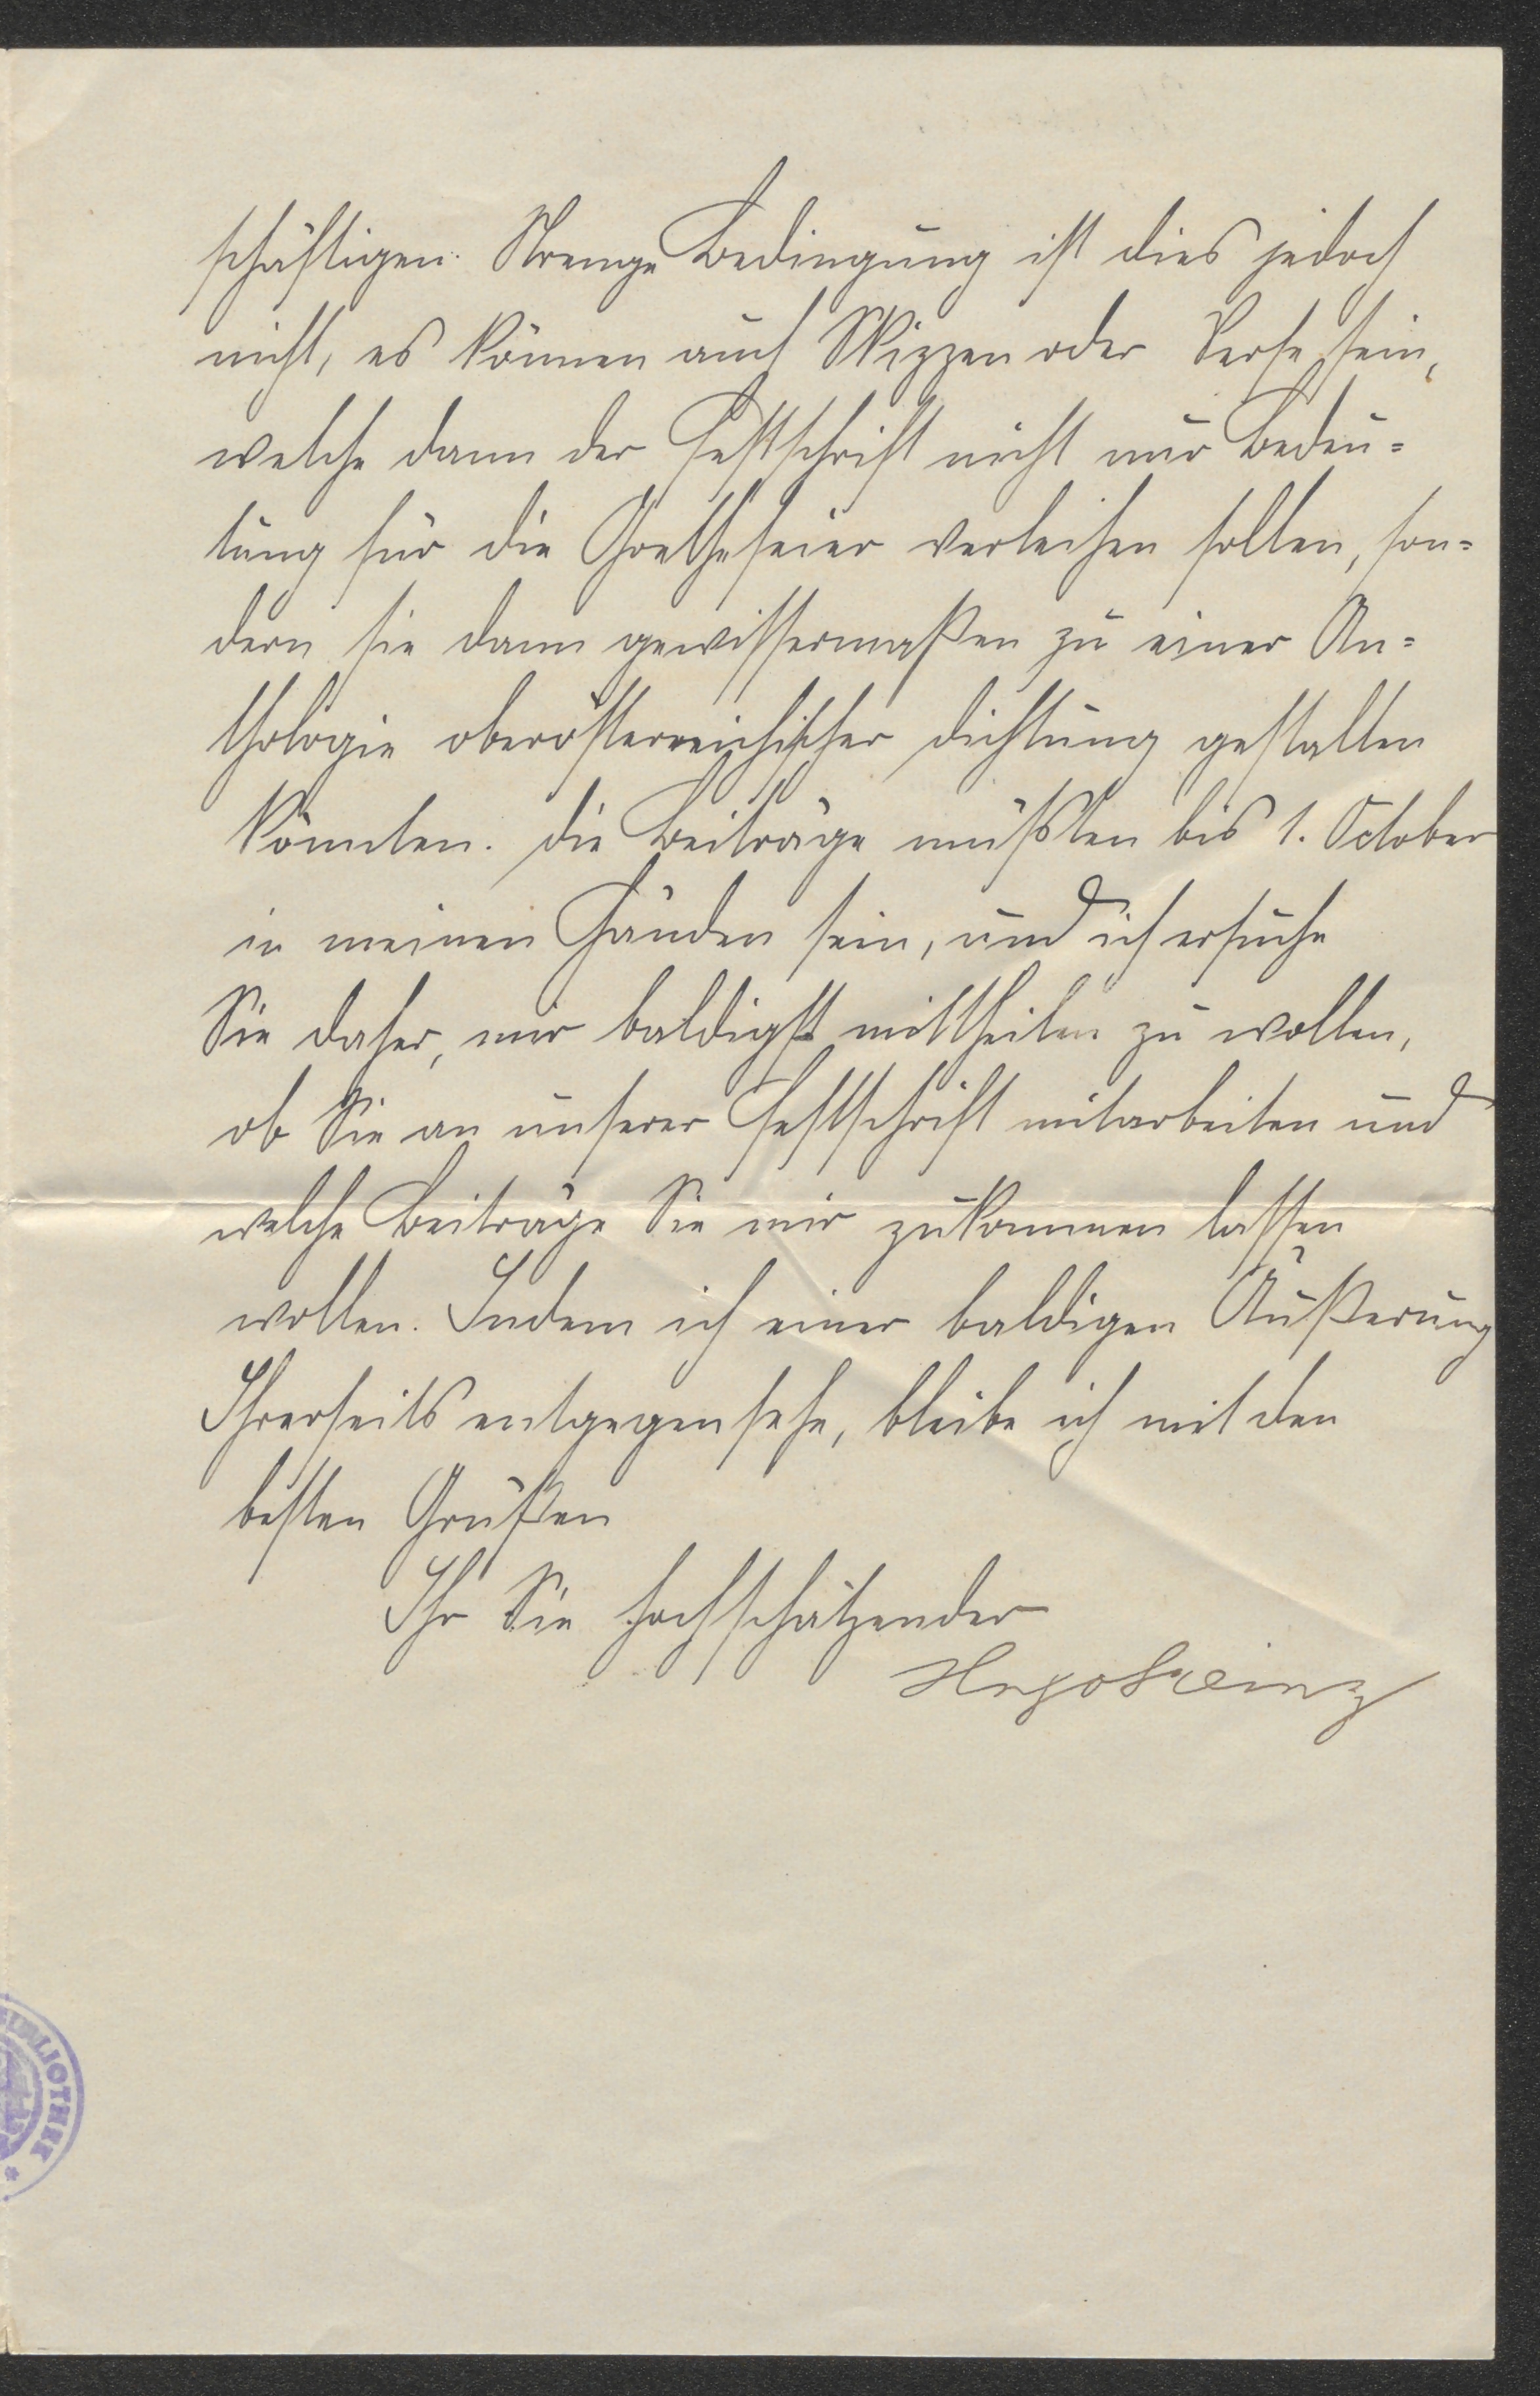 schäftigen. Strenge Bedingung ist dies jedoch
nicht, es können auch Skizzen oder Verse sein,
welche dann der Festschrift nicht nur Bedeu=
tung für die Goethefeier verleihen sollen, son=
dern sie dann gewissermaßen zu einer An=
thologie oberösterreichischer Dichtung gestalten
könnten. Die Beiträge müßten bis 1. October
in meinen Händen sein, und ich ersuche
Sie daher, mir baldigst mittheilen zu wollen,
ob Sie an unserer Festschrift mitarbeiten und
welche Beiträge Sie mir zukommen lassen
wollen. Indem ich einer baldigen Äußerung
Ihrerseits entgegensehe, bleibe ich mit den
besten Grüßen
Ihr Sie hochschätzender
Hugo Greinz